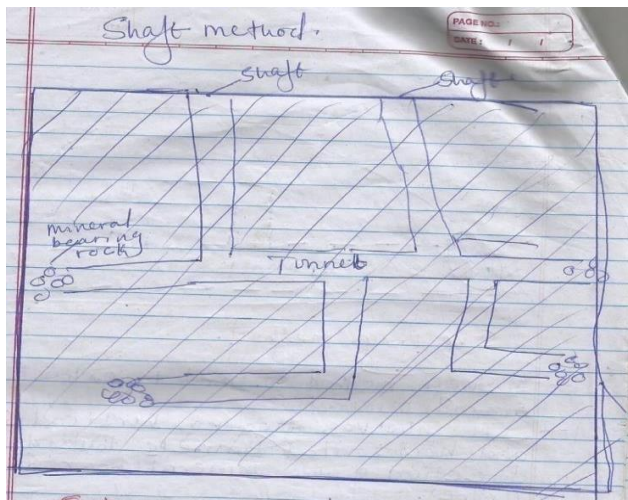 Shaft method.
PAGE NO.:
DATE: / /
shaft
shaft
mineral
bearing
rock
Tunnel